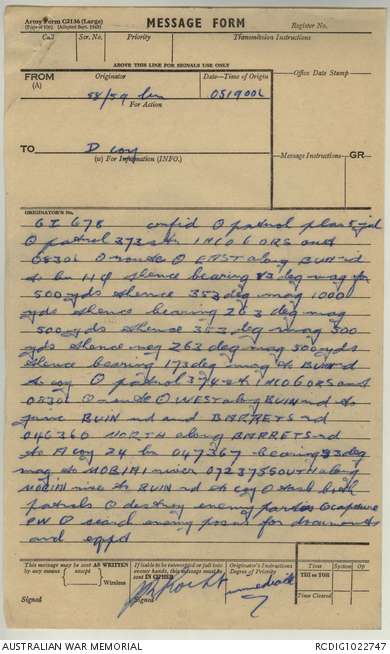 Army Form C2136 (Large)
(Pads of 100) (Adopted Sept. 1942)
MESSAGE FORM
Register No.
Call
Ser. No.
Priority
Transmission Instructions
ABOVE THIS LINE FOR SIGNALS USE ONLY
FROM
(A)
Originator
Date—Time of Origin
Office Date Stamp
58/59 bn
051900L
For Action
TO
D coy
(W) For Information (INFO.)
Message Instructions
GR
ORIGINATOR'S No.
GI 678 confid O patrol plan
O patrol 373 str 1 NCO 6 ORS and
O route O EAST along BUIN rd
to bn HQ thence bearing 83 deg mag for
500 yds thence 353 deg mag 1000
yds thence bearing 263 deg mag
500 yds thence 353 deg mag 500
yds thence mag 263 deg mag 500 yds
thence bearing 173 deg mag to BUIN rd
to coy O patrol 374 str 1 NCO 6 ORS and
O route O WEST along BUIN rd to
junc BUIN rd and BARRETS rd
046360 NORTH along BARRETS rd
to A coy 24 bn 047367 bearing 83 deg
mag to MOBIAI river 072375 SOUTH along
MOBIAI river to BUIN rd to coy O task both
patrols O destroy enemy parties O capture
PW O search enemy posns for documents
and eqpt
This message may be sent AS WRITTEN
by any means (except) Wireless
If liable to be intercepted or fall into
enemy hands, this message must be
sent IN CIPHER
Originator's Instructions
Degree of Priority
Time
System
Op
THI or TOR
Time Cleared
immediate
Signed
Signed
AUSTRALIAN WAR MEMORIAL
RCDIG1022747